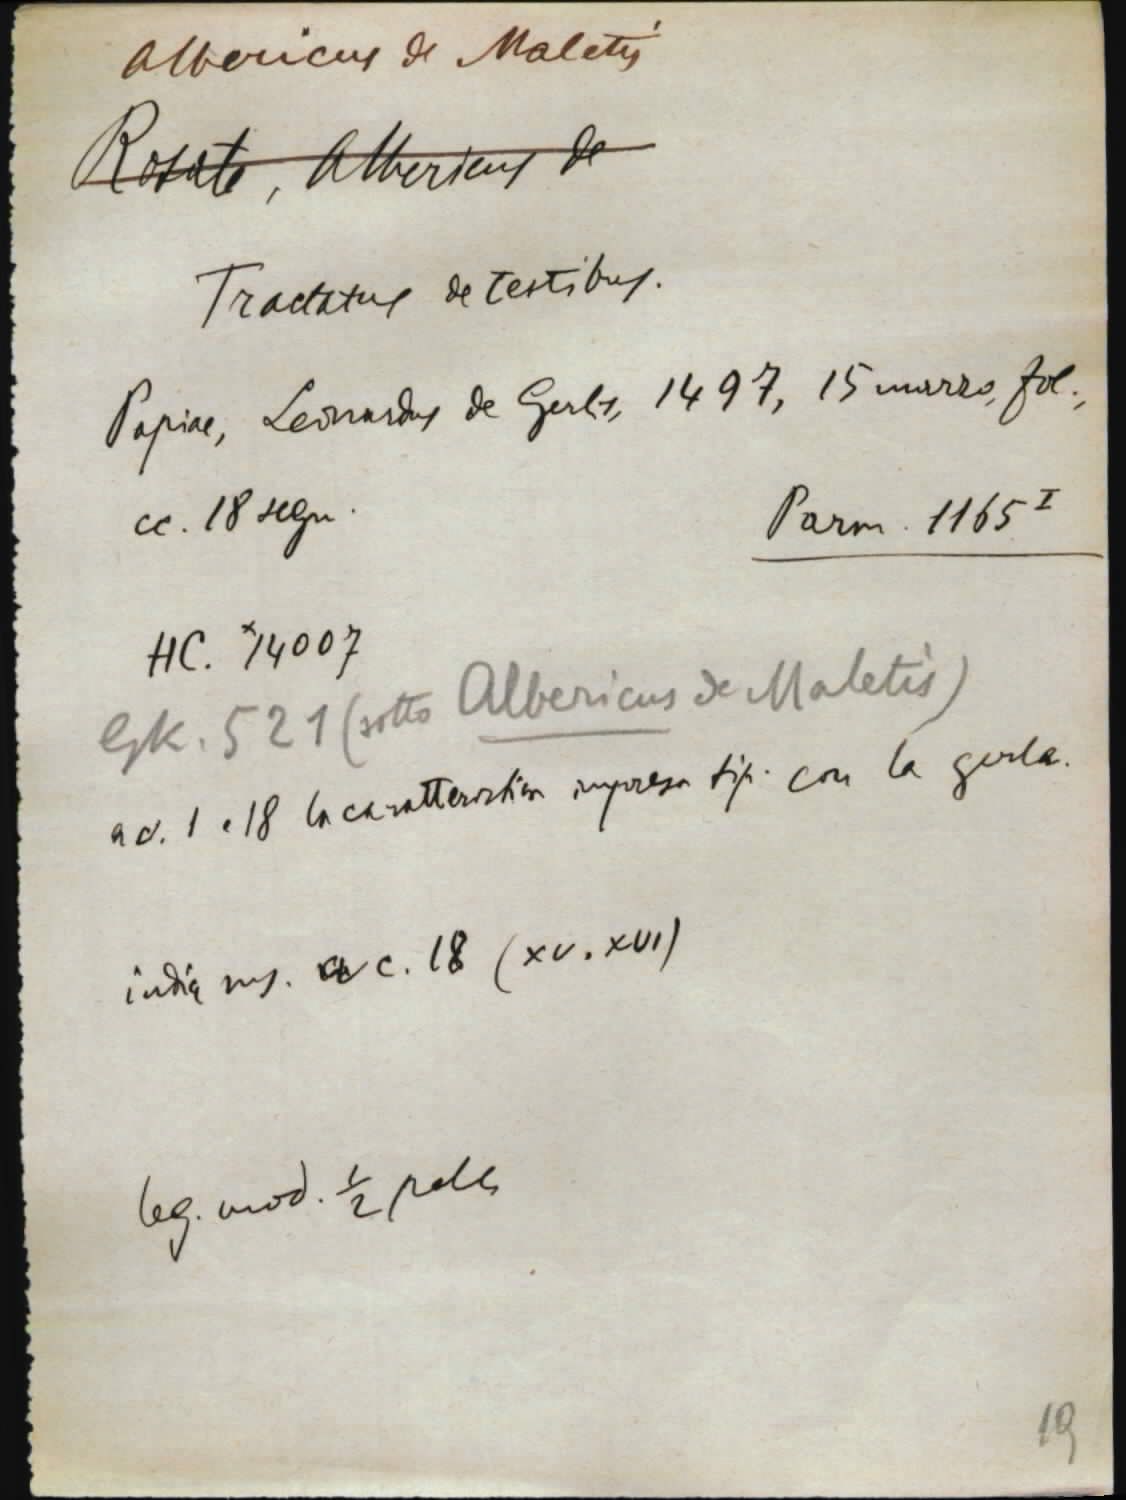 Albericus de Maletis
Rosate, Albericus de
Tractatus de testibus.
Papiae, Leonardus de Gerlis, 1497, 15 marzo, fol.,
cc. 18 segn.
Parm. 1165 I
HC. *14007
GK. 521 (sotto Albericus de Maletis)
a c. 1 e 18 la caratteristica impresa tip. con la gerla.
indice ms. a c. 18 (XV-XVI)
leg. mod. 1/2 pelle
19